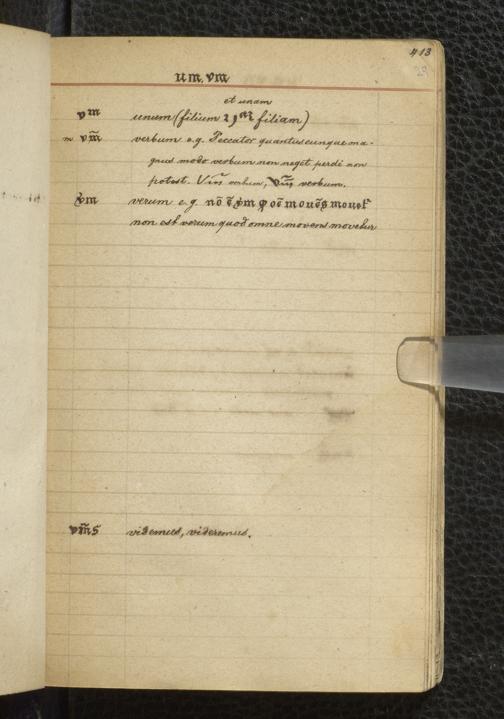 413
29
um, vm
et unam
vm unum (filium 2 filiam)
m vm̄ verbum e.g. Peccator quantuscunque ma-
gnus modo verbum non neget perdi non
potest. verbum, verbum.
vm verum e.g. nō ē vm ꝙ oē mouēs mouet᷑
non est verum quod omne movens movetur
vm̄s videmus, videremus.